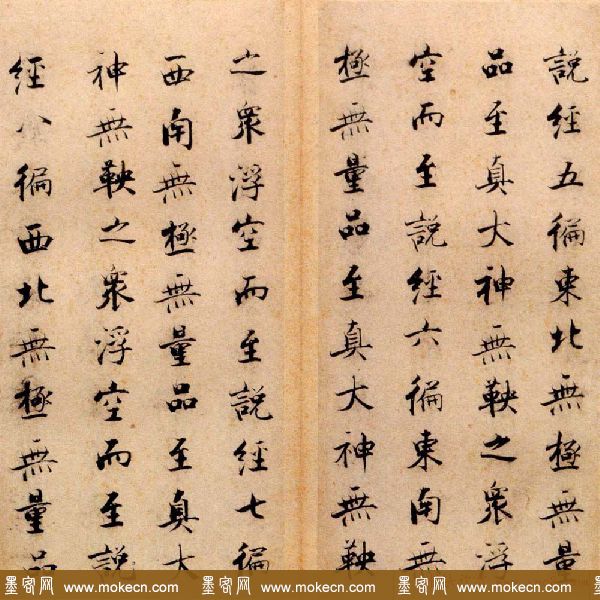 說經五徧東北無極無量
品至真大神無鞅之衆浮
空而至說經六徧東南無
極無量品至真大神無鞅
之衆浮空而至說經七徧
西南無極無量品至真大
神無鞅之衆浮空而至說
經八徧西北無極無量品
墨客网 www.mokecn.com 墨客网 www.mokecn.com 墨客网 www.mokecn.com